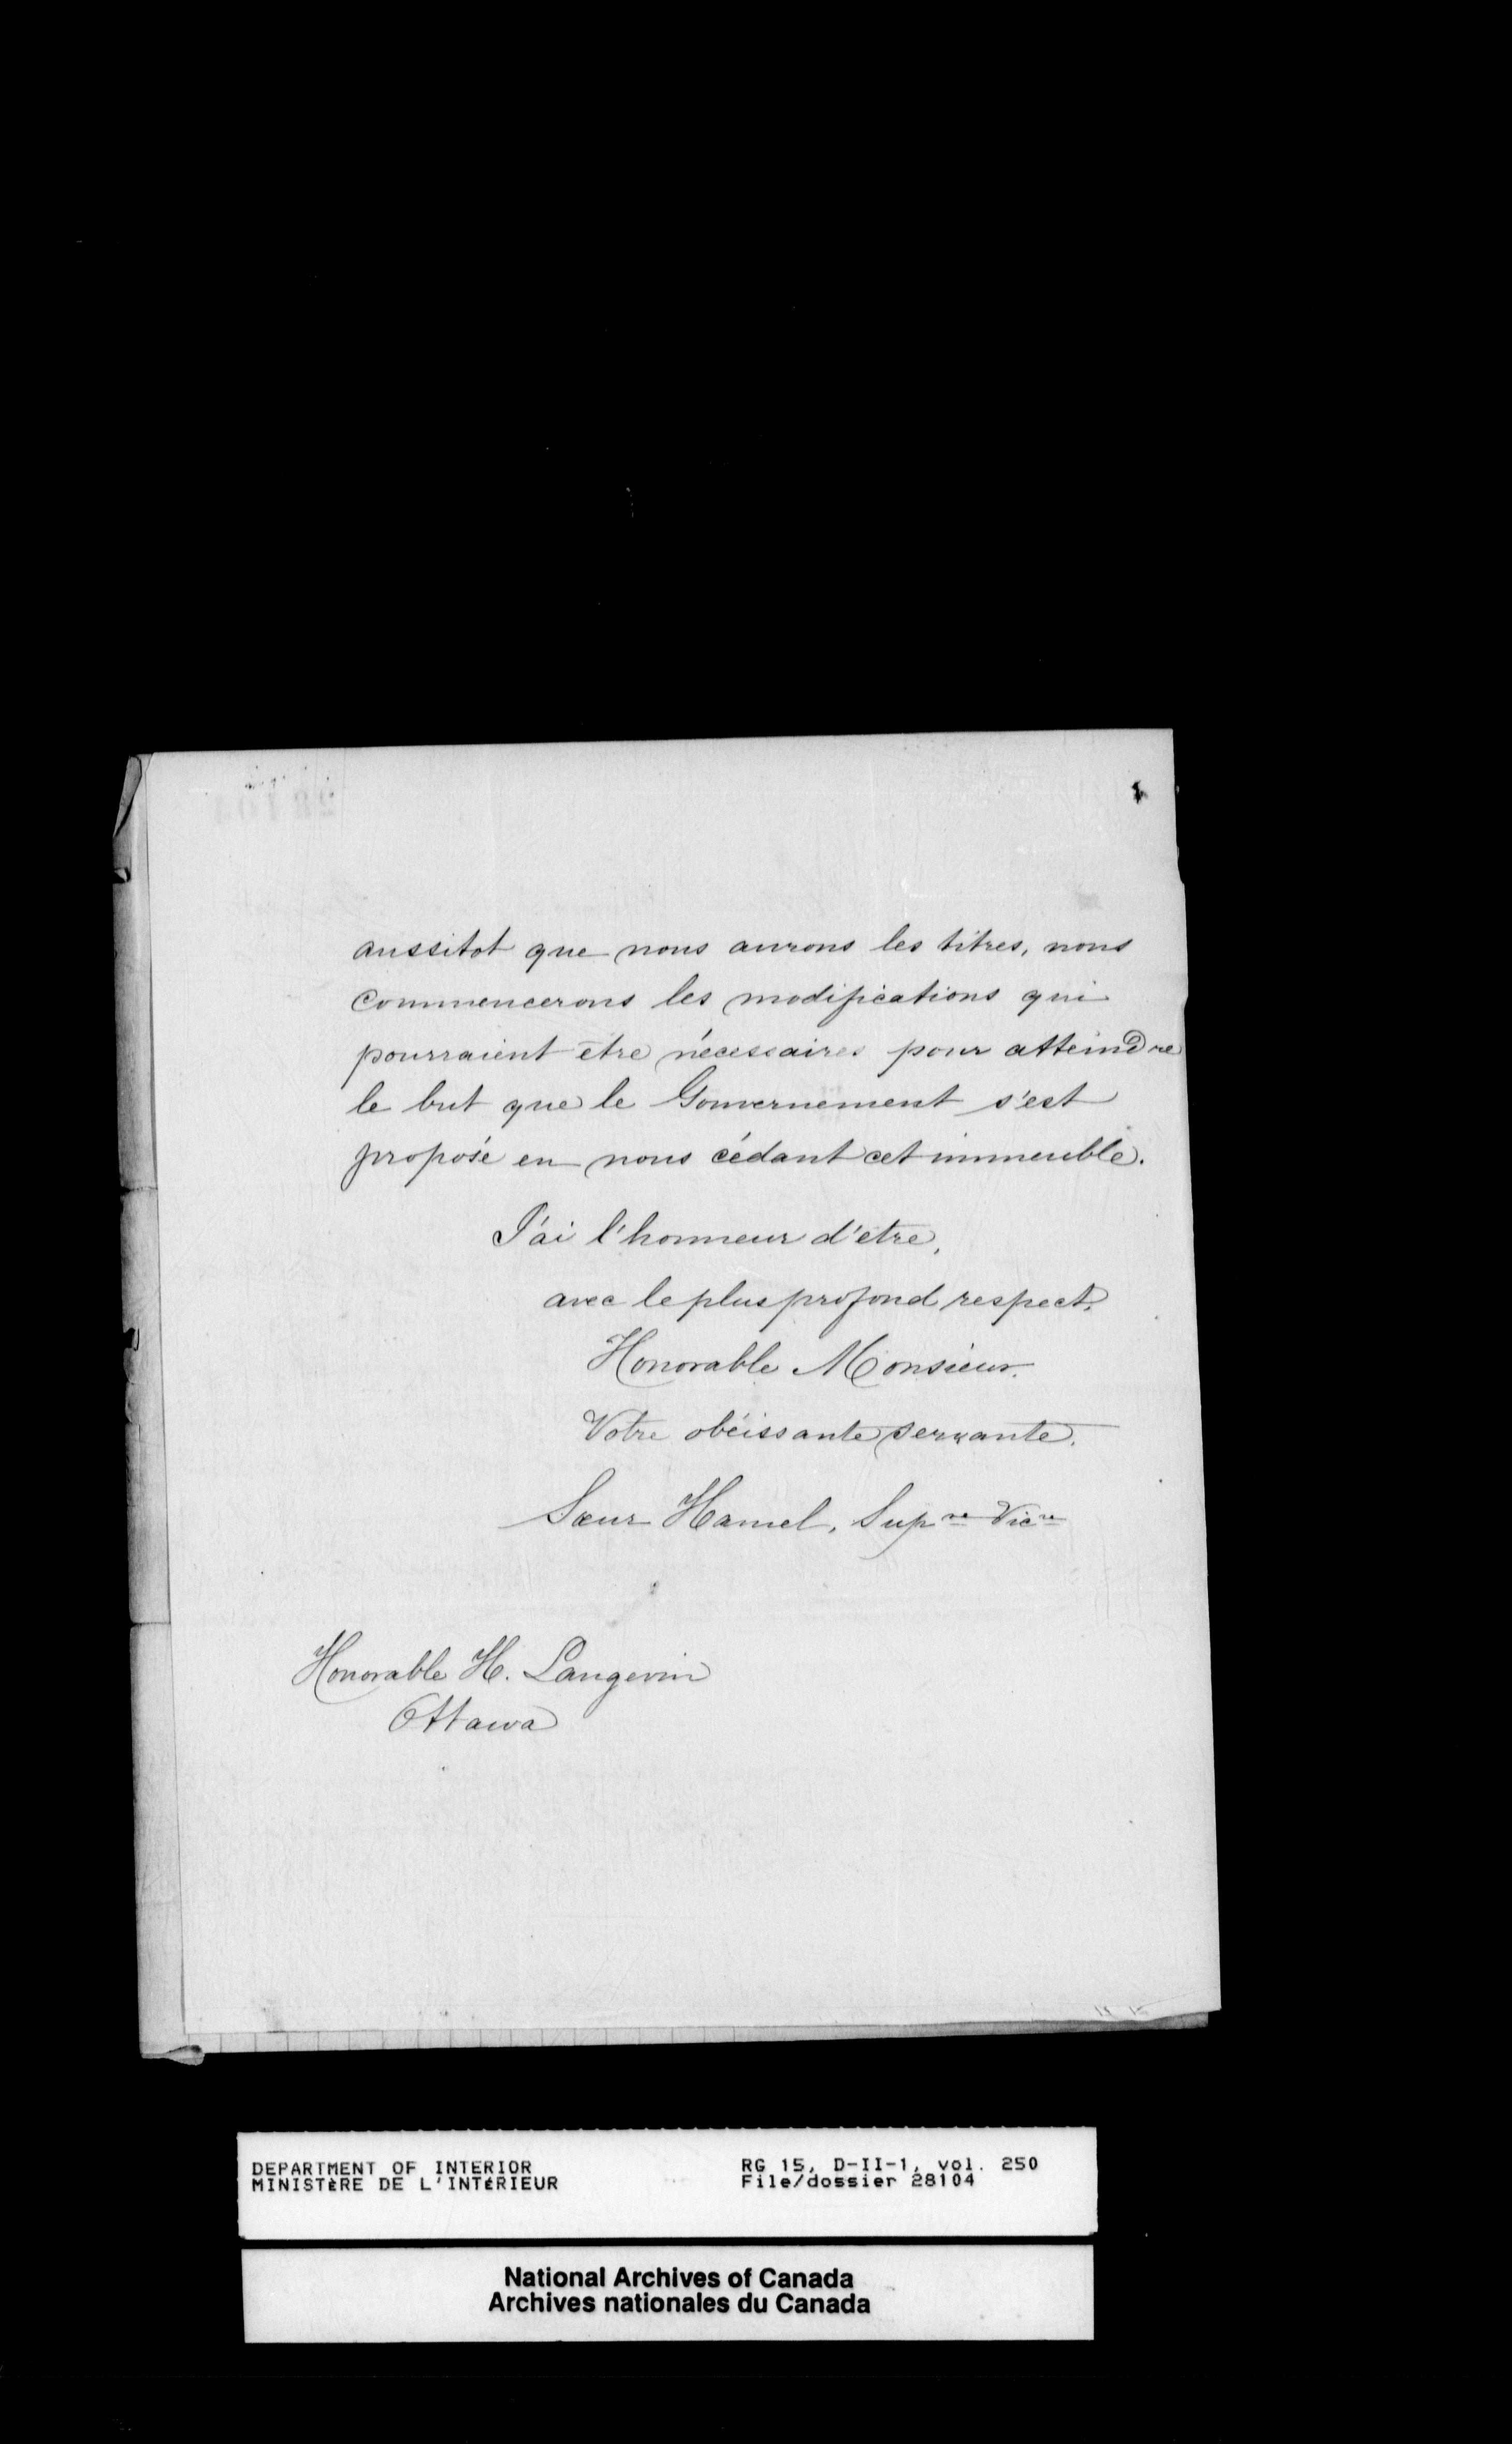 aussitot que nous aurons les titres, nous
commencerons les modifications qui
pourraient être nécessaires pour atteindre
le but que le Gouvernement s'est
proposé en nous cédant cet immeuble.
J'ai l'honneur d'etre,
avec le plus profond respect,
Honorable Monsieur.
Votre obéissante servante.
Sœur Hamel, Supre Vicre
Honorable H. Langevin
Ottawa
DEPARTMENT OF INTERIOR RG 15, D-II-1, vol. 250
MINISTÈRE DE L'INTÉRIEUR File/dossier 28104
National Archives of Canada
Archives nationales du Canada